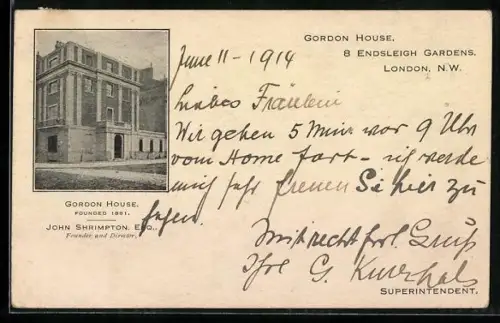 GORDON HOUSE,
8 ENDSLEIGH GARDENS,
LONDON, N.W.
June 11 - 1914
Liebes Fräulein
Wir gehen 5 Min vor 9 Uhr
vom Home fort - ich werde
mich sehr freuen Sie hier zu
sehen.
Mit recht frdl. Gruß
Ihre G.
SUPERINTENDENT.
GORDON HOUSE,
FOUNDED 1881.
JOHN SHRIMPTON, ESQ.,
Founder and Director.